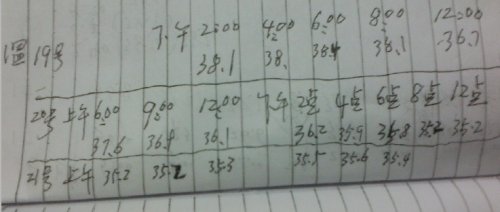 19号 下午 2:00 4:00 6:00 8:00 12:00
38.1 38. 38.4 38.1 36.7
20号 上午 6:00 9:00 12:00 下午 2点 4点 6点 8点 12点
37.6 36.9 36.1 36.2 35.9 35.8 35.2 35.2
21号 上午 35.2 35.2 35.3 35.5 35.6 35.4